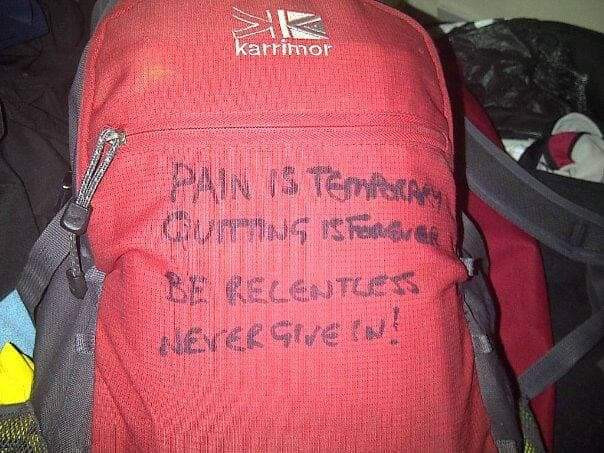 karrimor
PAIN IS TEMPORARY
QUITTING IS FOREVER
BE RELENTLESS
NEVER GIVE IN!